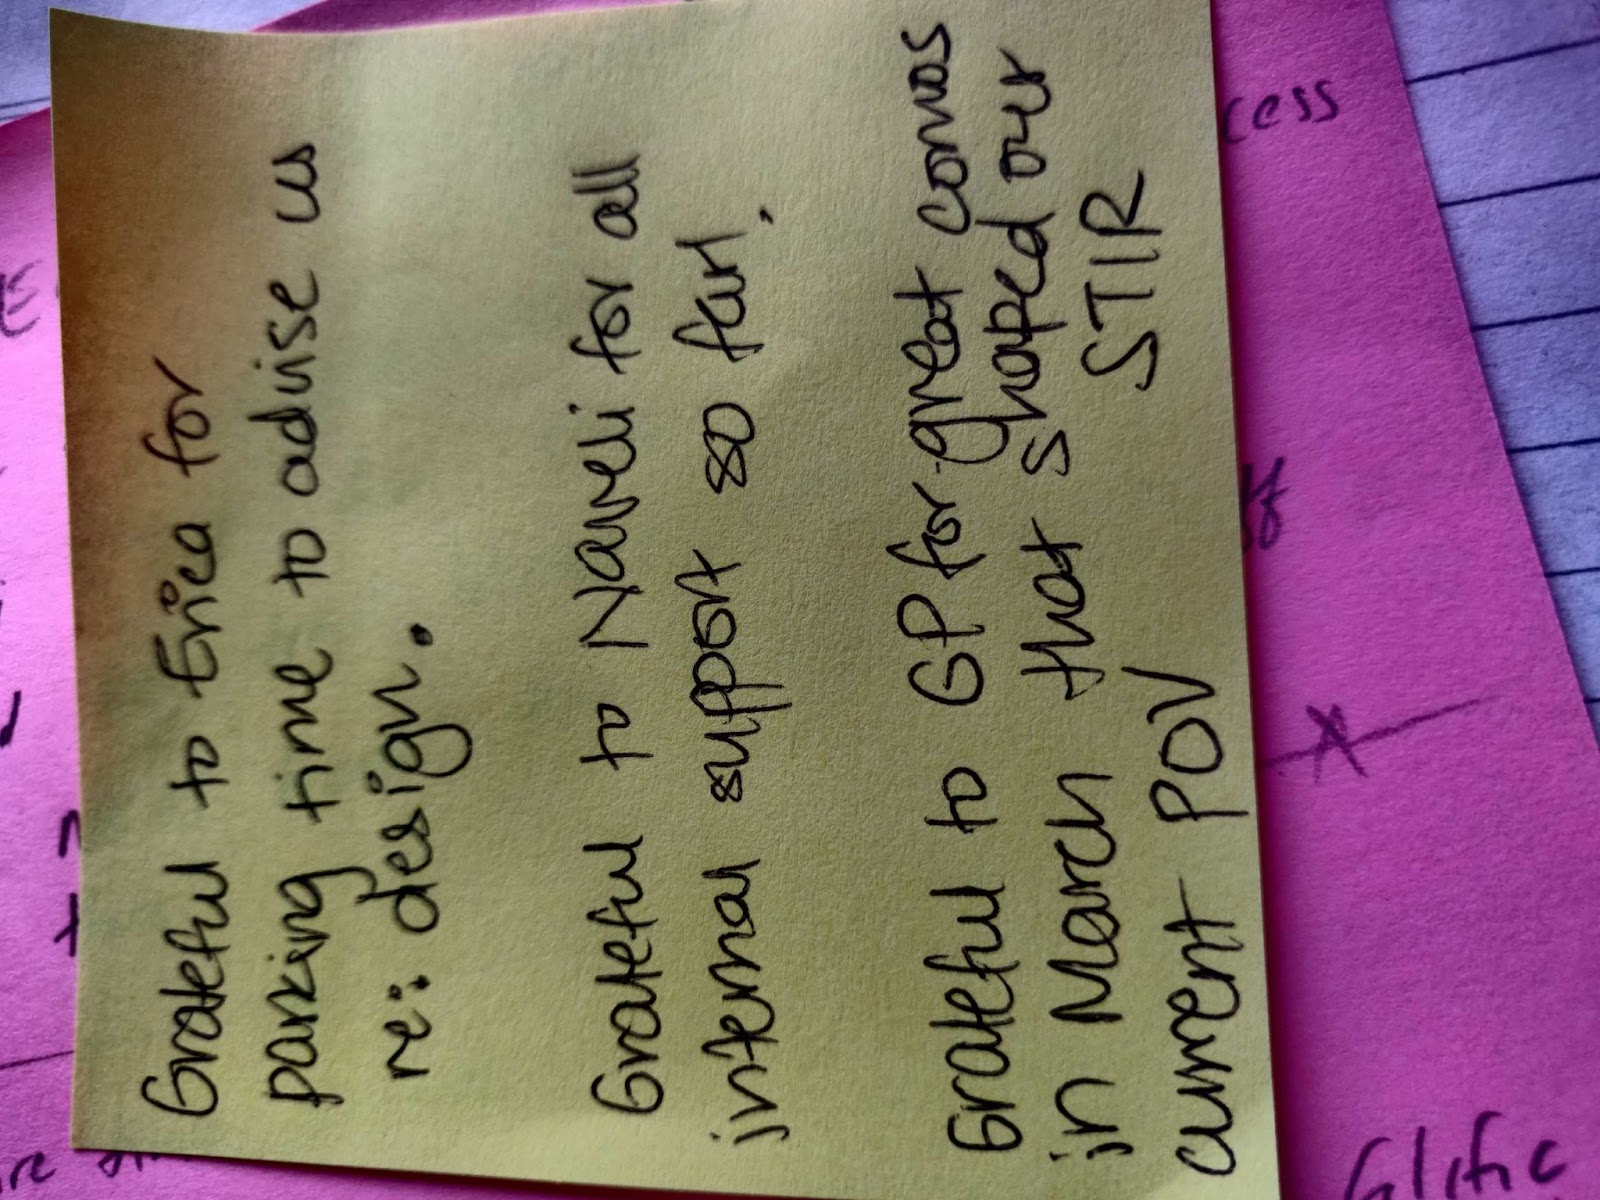 Grateful to Erica for
parking time to advise us
re: design.
Grateful to Naveli for all
internal support so far!,
Grateful to GP for great convos
in March that shaped our
current POV STIR
cess
Glific